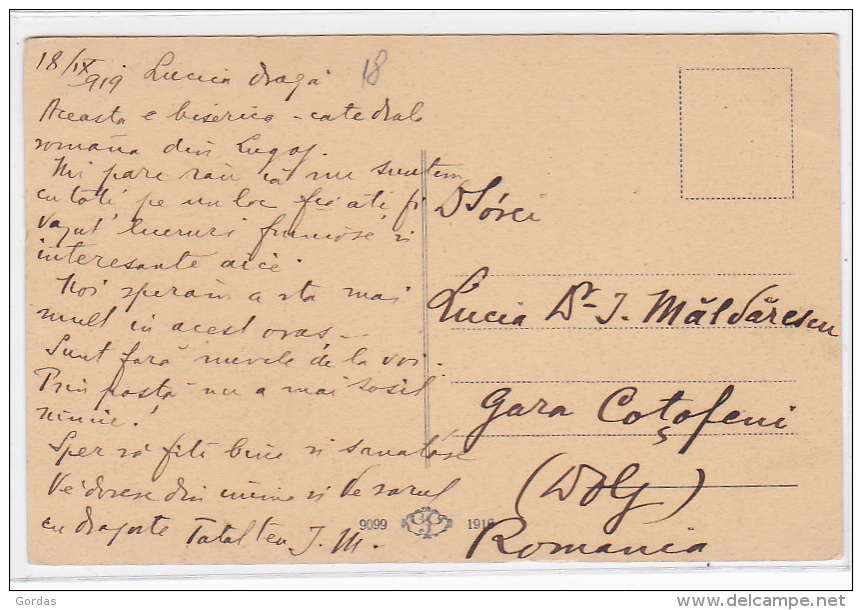 18/IX 919 Lucia dragă
18
Aceasta e biserica - catedrală
româna din Lugoj.
Imi pare rău că nu suntem
cu toți pe un loc fi ați fi
vazut lucruri frumóse și
interesante aici.
Noi sperăm a sta mai
mult in acest oraș -
Sunt fără nuvele de la voi.
Prin postă nu a mai sosit
nimic!
Sper să fiți bine și sanatóse
Ve doresc din inimă și Ve sarut
cu dragoste Tatal teu J. M.
DSórei
Lucia Dr. J. Măldărescu
Gara Coțofeni
(Dolj)
Romania
9099 1916
Gordas delcampe.net